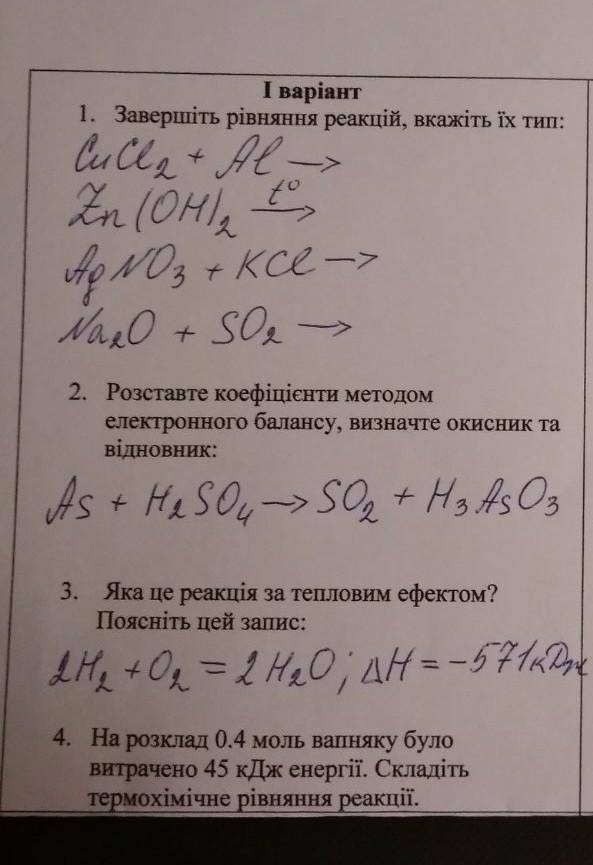 І варіант
1. Завершіть рівняння реакцій, вкажіть їх тип:
CuCl₂ + Al →
Zn(OH)₂ t° →
AgNO₃ + KCl →
Na₂O + SO₂ →
2. Розставте коефіцієнти методом
електронного балансу, визначте окисник та
відновник:
As + H₂SO₄ → SO₂ + H₃AsO₃
3. Яка це реакція за тепловим ефектом?
Поясніть цей запис:
2H₂ + O₂ = 2H₂O; ΔH = -571кДж
4. На розклад 0.4 моль вапняку було
витрачено 45 кДж енергії. Складіть
термохімічне рівняння реакції.